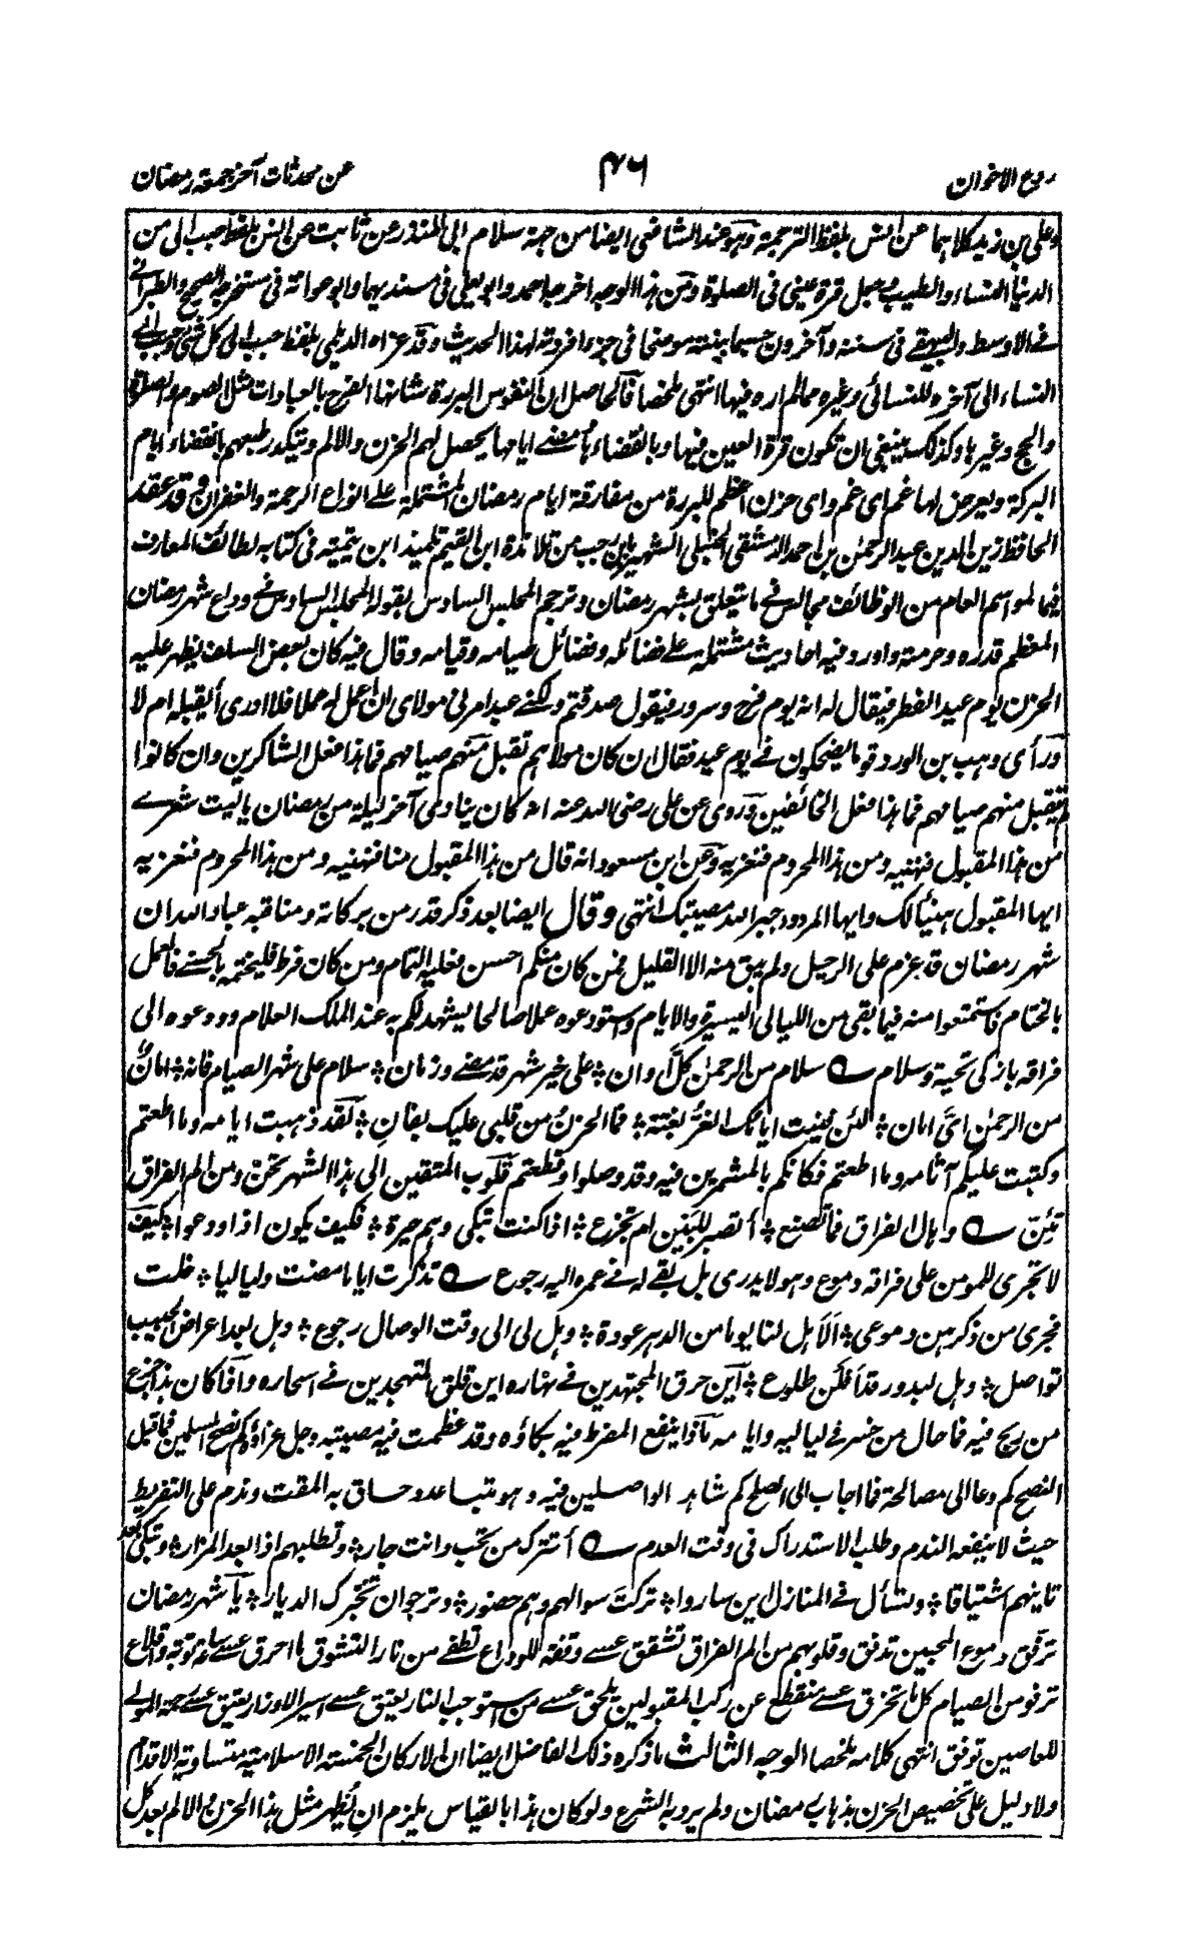 ردع الاخوان
۴۶
عن محدثات آخر جمعة رمضان
وعلى بن زيد كلاهما عن انس بلفظ الترجمة وهو عند النسائي ايضا من جهة سلام ابي المنذر عن ثابت عن انس بلفظ حبب الى من
الدنيا النساء والطيب وجعل قرة عيني في الصلوة ومن هذا الوجه اخرجه احمد وابو يعلى في مسنديهما وابو عوانة في مستخرجه الصحيح والطبراني
في الاوسط والبيهقي في سننه وآخرون حسبما بينته موضحا في جزء افردته لهذا الحديث وقد عزاه الديلمي بلفظ حبب الى كل شئ وحبب الى
النساء الى آخره للنسائي وغيره مما لم اره فيها انتهى ملخصا فالحاصل ان النفوس البررة شانها الفرح بالعبادات مثل الصوم والصلوة
والحج وغيرها وكذلك ينبغي ان تكون قرة العين فيها وبالقضاءها ومضي ايامها يحصل لهم الحزن والالم ويتكدر طبعهم بانقضاء ايام
البركة ويعرض لها غم اى غم واى حزن اعظم للبررة من مفارقة ايام رمضان المشتملة على انواع الرحمة والغفران وقد عقد
الحافظ زين الدين عبد الرحمٰن بن احمد الدمشقي الحنبلي الشهير بابن رجب من تلامذة ابن القيم تلميذ ابن تيمية في كتابه لطائف المعارف
فيما لمواسم العام من الوظائف مجالس في ما يتعلق بشهر رمضان وترجم المجلس السادس بقوله المجلس السادس في وداع شهر رمضان
المعظم قدره وحرمته واورد فيه احاديث مشتملة على فضائله وفضائل صيامه وقيامه وقال فيه كان بعض السلف يظهر عليه
الحزن يوم عيد الفطر فيقال له انه يوم فرح وسرور فيقول صدقتم ولكني عبد امرني مولاى ان اعمل له عملا فلا ادرى أيقبله ام لا
ورأى وهيب بن الورد قوما يضحكون في يوم عيد فقال ان كان مولاهم تقبل منهم صيامهم فما هذا فعل الشاكرين وان كانوا
لم يتقبل منهم صيامهم فما هذا فعل الخائفين وروى عن على رضى الله عنه انه كان ينادى آخر ليلة من رمضان يا ليت شعرى
من هذا المقبول فنهنيه ومن هذا المحروم فنعزيه وعن ابن مسعود انه قال من هذا المقبول منا فنهنيه ومن هذا المحروم فنعزيه
ايها المقبول هنيئا لك وايها المردود جبر الله مصيبتك انتهى وقال ايضا بعد ذكر قدر من بركاته ومناقبه عباد الله ان
شهر رمضان قد عزم على الرحيل ولم يبق منه الا القليل فمن كان منكم احسن فعليه التمام ومن كان فرط فليختمه بالحسنى فالعمل
بالختام فاستمتعوا منه فيما بقى من الليالى اليسيرة والايام واستودعوه عملا صالحا يشهد لكم به عند الملك العلام وودعوه الى
فراقه بازكى تحية وسلام سلام من الرحمٰن كل أوان ۞ على خير شهر قد مضى وزمان ۞ سلام على شهر الصيام فانه ۞ امان
من الرحمٰن اىَّ امان ۞ لئن فنيت ايامك الغرّ بغتة ۞ فما الحزنُ من قلبى عليك بفانِ ۞ لقد ذهبت ايامه وما اطعتم
وكتبت عليكم آثامه وما اطعتم فكانكم بالمشمرين فيه وقد وصلوا وقطعتم قلوب المتقين الى هذا الشهر تحن ومن الم الفراق
تئن دهاك الفراق فما تصنع ۞ أتصبر للبين ام تجزع ۞ اذا كنت تبكى وهم جيرة ۞ فكيف يكون اذا ودعوا ۞ كيف
لا تجرى للمومن على فراقه دموع وهو لا يدرى هل بقى له في عمره اليه رجوع تذكرت اياما مضت ولياليا ۞ خلت
فجرى من ذكرهن دموعى ۞ الا هل لنا يوما من الدهر عودة ۞ وهل لى الى وقت الوصال رجوع ۞ وهل بعد اعراض الحبيب
تواصل ۞ وهل لبدور قد افلن طلوع ۞ اين حرق المجتهدين في نهاره اين قلق المتهجدين في اسحاره واذا كان هذا جزع
من ربح فيه فما حال من خسر في لياليه وايامه ماذا ينفع المفرط فيه بكاؤه وقد عظمت فيه مصيبته وجل عزاؤه كم نصح المسلمين فما قبل
النصح كم دعا الى مصالحة فما اجاب الى الصلح كم شاهد الواصلين فيه وهو متباعد وحساق به المقت وندم على التفريط
حيث لا ينفعه الندم وطلب الاستدراك في وقت العدم أتترك من تحب وانت جار ۞ وتطلبهم اذا بعد المزار ۞ وتبكى بعد
نايهم اشتياقا ۞ وتسأل في المنازل اين ساروا ۞ تركت سوالهم وهم حضور ۞ وترجو ان تخبرك الديار ۞ يا شهر رمضان
ترفق دموع المحبين تدفق وقلوبهم من الم الفراق تشقق عسى وقفة للوداع تطفى من نار التشوق ما احرق عسى ساعة توبة واقلاع
ترفو من الصيام كل ما تخرق عسى منقطع عن ركب المقبولين يلحق عسى من استوجب النار يعتق عسى اسير الاوزار يعتق عسى رحمة المولى
للعاصين توفق انتهى كلامه ملخصا الوجه الثالث ما ذكره ذلك الفاضل ايضا ان الاركان الخمسة الاسلامية متساوية الاقدام
ولا دليل على تخصيص الحزن بذهاب رمضان ولم يرد به الشرع ولو كان هذا بالقياس يلزم ان يُظهر مثل هذا الحزن والالم بعد كل